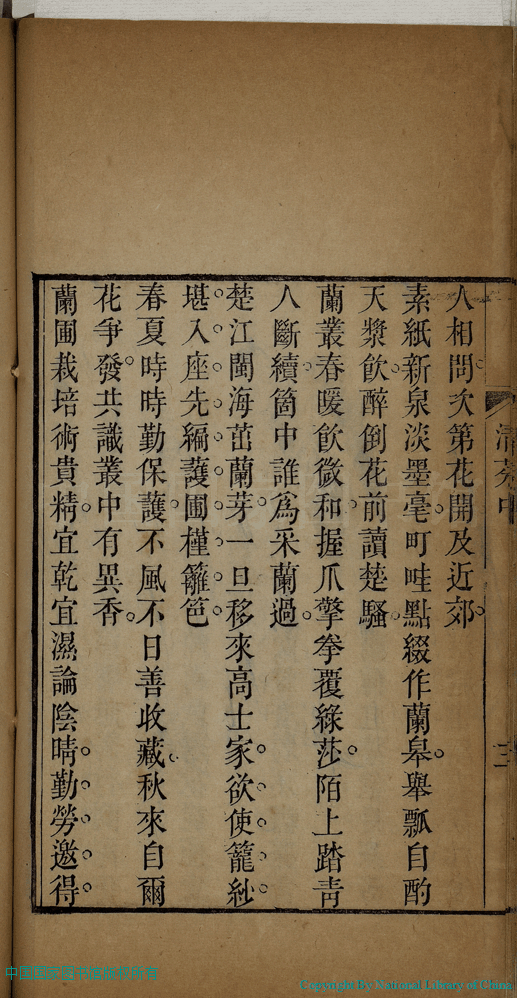 人相問次第花開及近郊
素紙新泉淡墨毫町畦點綴作蘭皋舉瓢自酌
天漿飲醉倒花前讀楚騷
蘭叢春暖飲微和握爪擎拳覆綠莎陌上踏靑
人斷續箇中誰爲采蘭過
楚江閩海茁蘭芽一旦移來高士家欲使籠紗
堪入座先編護圃槿籬笆
春夏時時勤保護不風不日善收藏秋來自爾
花爭發共識叢中有異香
蘭圃栽培術貴精宜乾宜濕論陰晴勤勞邀得
Copyright By National Library of China